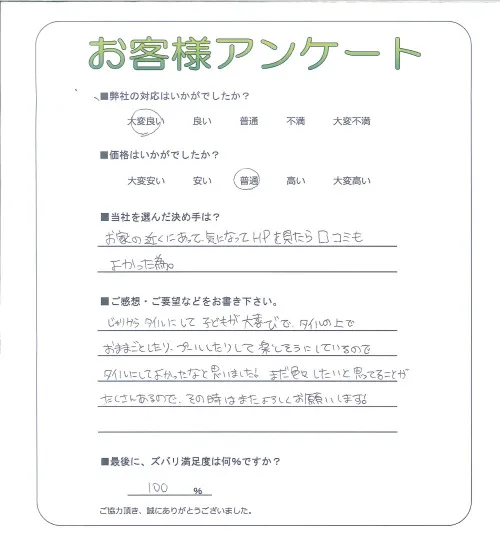 お客様アンケート
■弊社の対応はいかがでしたか？
大変良い 良い 普通 不満 大変不満
■価格はいかがでしたか？
大変安い 安い 普通 高い 大変高い
■当社を選んだ決め手は？
お家の近くにあって、気になってHPを見たら口コミも
よかった為。
■ご感想・ご要望などをお書き下さい。
じゃりから タイルにして 子どもが大喜びで、タイルの上で
おままごとしたり、プールしたりして楽しそうにしているので
タイルにしてよかったなと思いました! まだ色々したいと思ってることが
たくさんあるので、その時はまたよろしくお願いします!
■最後に、ズバリ満足度は何％ですか？
100 %
ご協力頂き、誠にありがとうございました。